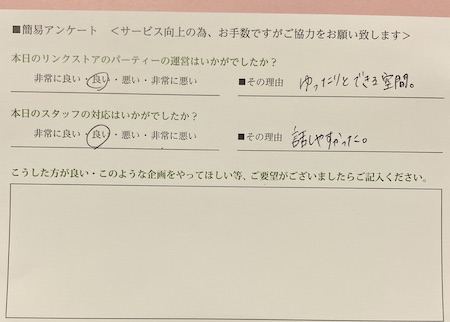 ■簡易アンケート ＜サービス向上の為、お手数ですがご協力をお願い致します＞
本日のリンクストアのパーティーの運営はいかがでしたか？
非常に良い・良い・悪い・非常に悪い ■その理由 ゆったりとできる空間。
本日のスタッフの対応はいかがでしたか？
非常に良い・良い・悪い・非常に悪い ■その理由 話しやすかった。
こうした方が良い・このような企画をやってほしい等、ご要望がございましたらご記入ください。